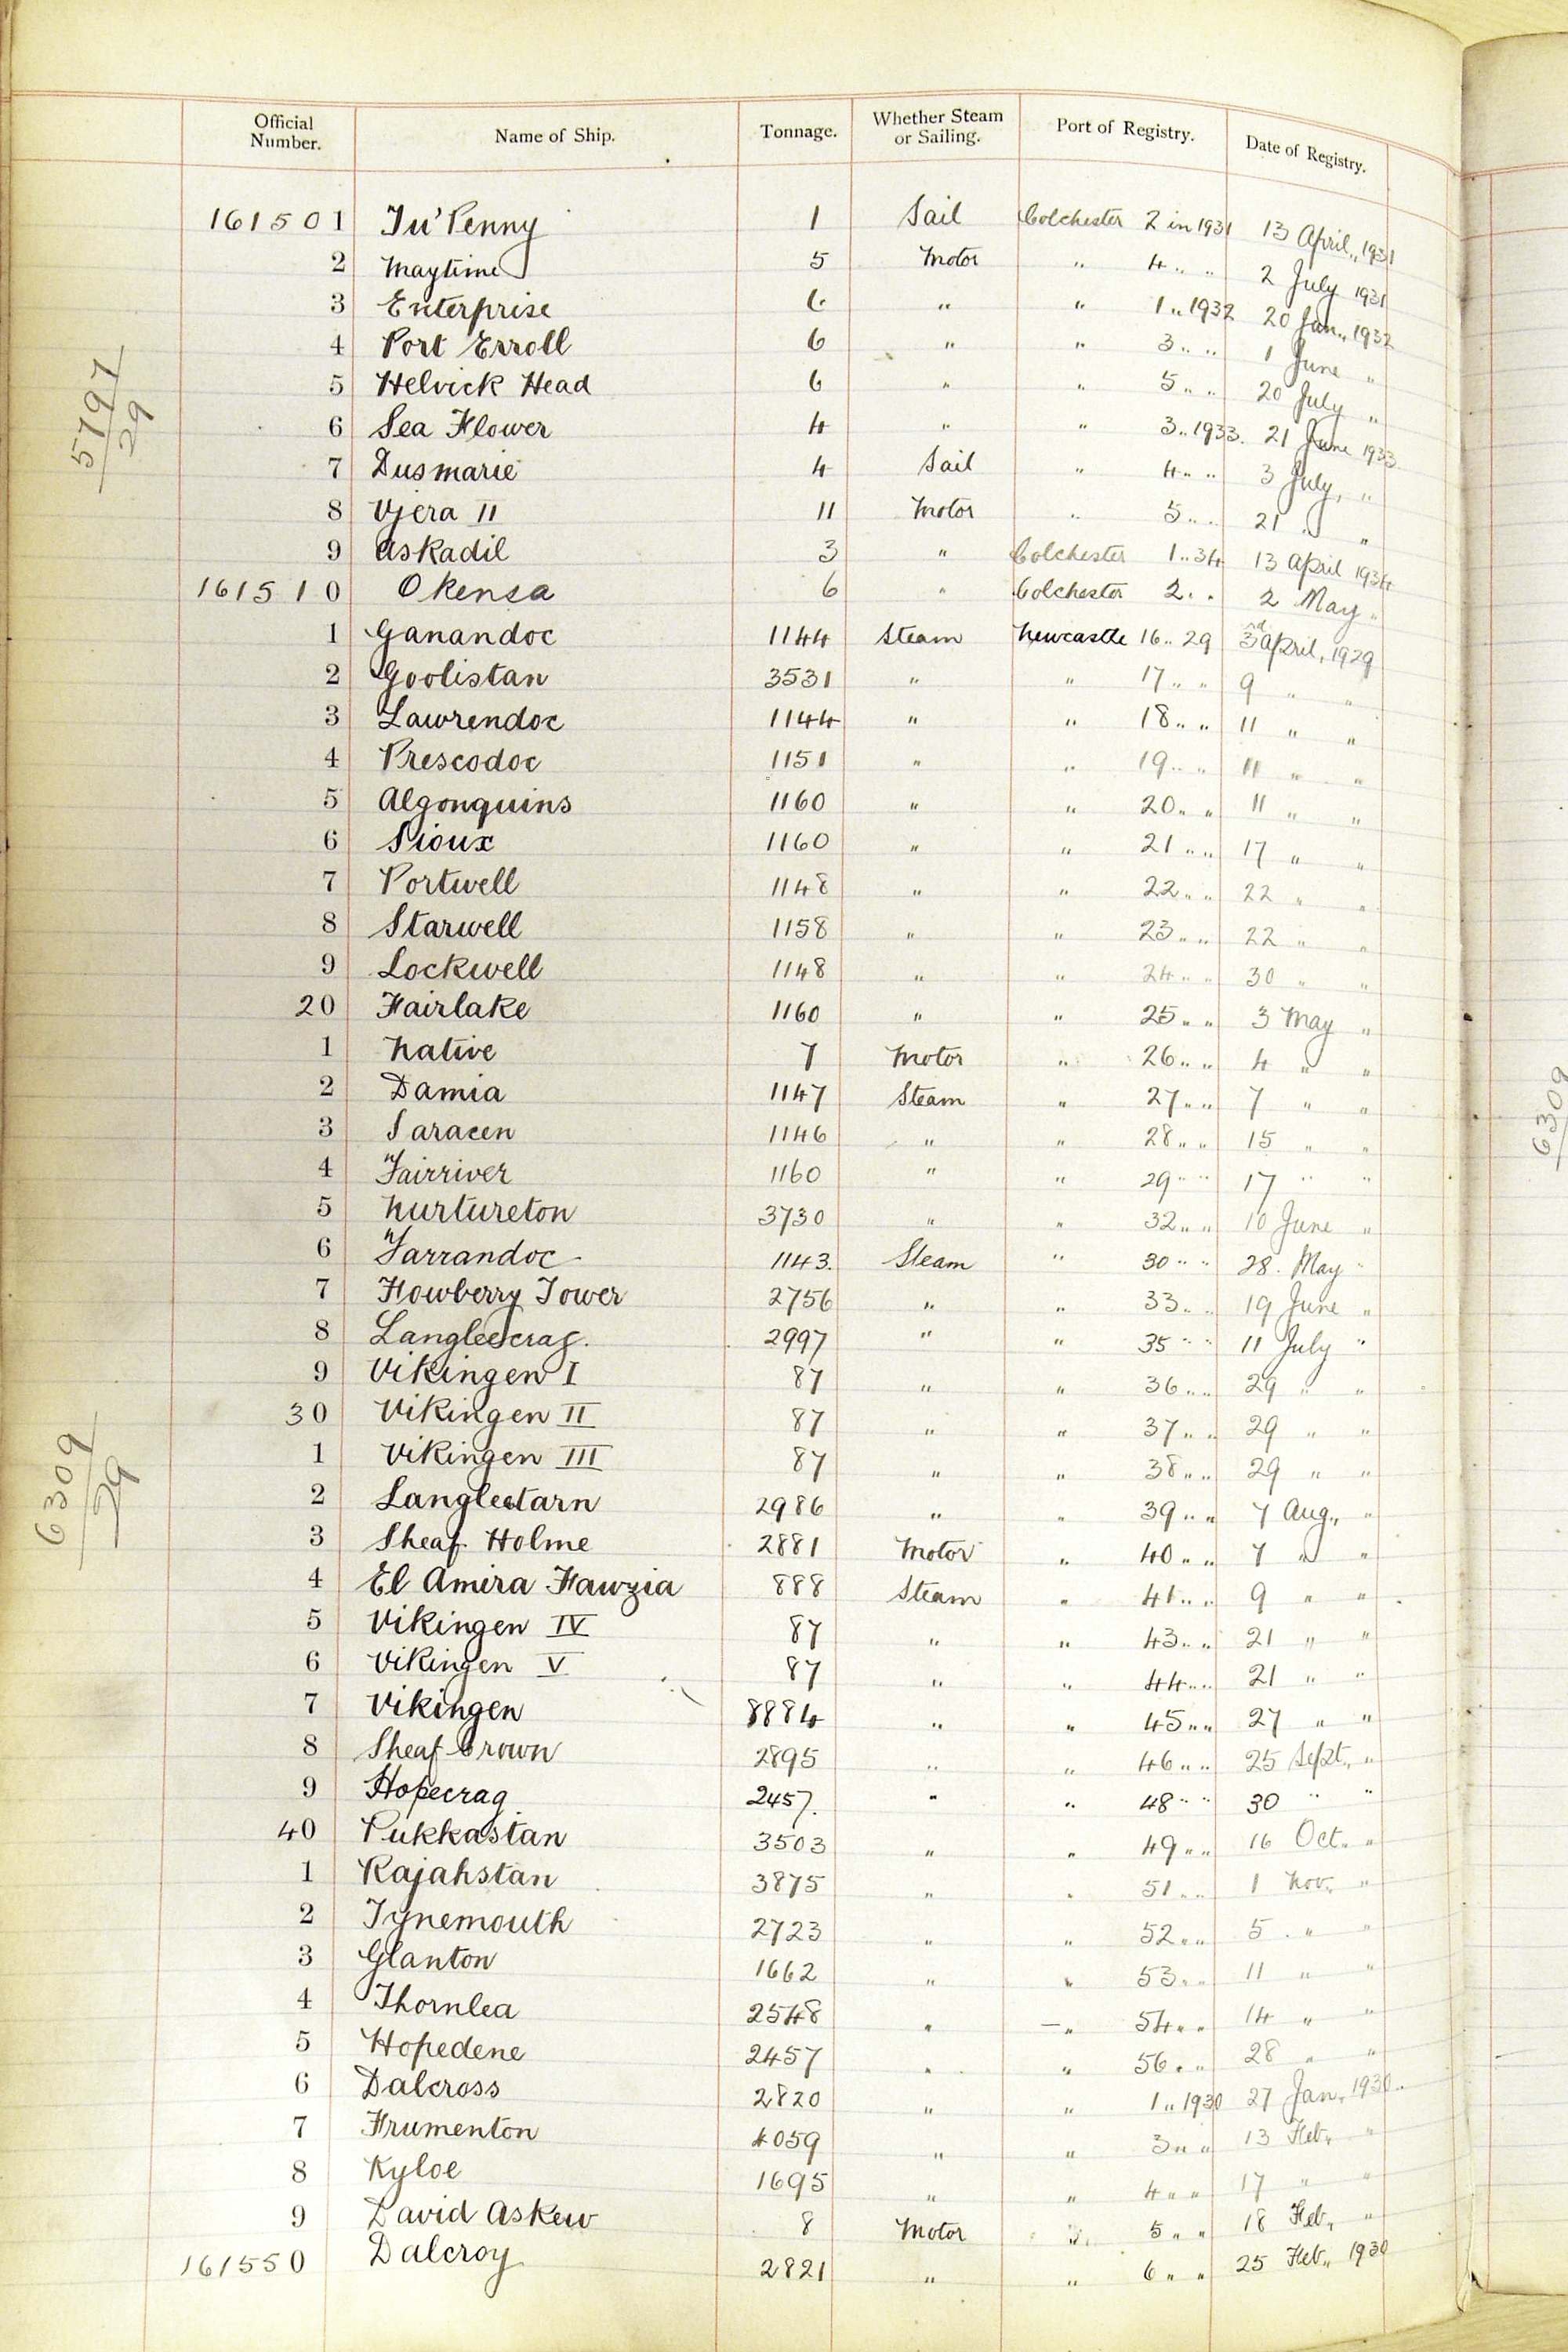 Official Number. Name of Ship. Tonnage. Whether Steam or Sailing. Port of Registry. Date of Registry.
161501 Tu'Penny 1 Sail Colchester 2 in 1931 13 April,, 1931
2 Maytime 5 Motor " 4 " " 2 July 1931
3 Enterprise 6 " " 1 " 1932 20 Jan., 1932
4 Port Erroll 6 " " 3 " " 1 June "
5 Helvick Head 6 " " 5 " " 20 July "
6 Sea Flower 4 " " 3 " 1933. 21 June 1933
7 Dusmarie 4 Sail " 4 " " 3 July, "
8 Vjera II 11 Motor " 5 " " 21 " "
9 Askadil 3 " Colchester 1 " 34 13 April 1934
161510 Okensa 6 " Colchester 2 " " 2 May "
1 Ganandoc 1144 Steam Newcastle 16 " 29 3rd April, 1929
2 Goolistan 3531 " " 17 " " 9 " "
3 Lawrendoc 1144 " " 18 " " 11 " "
4 Prescodoc 1151 " " 19 " " 11 " "
5 Algonquins 1160 " " 20 " " 11 " "
6 Sioux 1160 " " 21 " " 17 " "
7 Portwell 1148 " " 22 " " 22 " "
8 Starwell 1158 " " 23 " " 22 " "
9 Lockwell 1148 " " 24 " " 30 " "
20 Fairlake 1160 " " 25 " " 3 May "
1 Native 7 Motor " 26 " " 4 " "
2 Damia 1147 Steam " 27 " " 7 " "
3 Saracen 1146 " " 28 " " 15 " "
4 Fairriver 1160 " " 29 " " 17 " "
5 Nurtureton 3730 " " 32 " " 10 June "
6 Farrandoc 1143. Steam " 30 " " 28. May "
7 Howberry Tower 2756 " " 33 " " 19 June "
8 Langleecrag. 2997 " " 35 " " 11 July "
9 Vikingen I 87 " " 36 " " 29 " "
30 Vikingen II 87 " " 37 " " 29 " "
1 Vikingen III 87 " " 38 " " 29 " "
2 Langleetarn 2986 " " 39 " " 7 Aug., "
3 Sheaf Holme 2881 Motor " 40 " " 7 " "
4 El Amira Fawzia 888 Steam " 41 " " 9 " "
5 Vikingen IV 87 " " 43 " " 21 " "
6 Vikingen V 87 " " 44 " " 21 " "
7 Vikingen 8884 " " 45 " " 27 " "
8 Sheaf Crown 2895 " " 46 " " 25 Sept., "
9 Hopecrag 2457. " " 48 " " 30 " "
40 Pukkastan 3503 " " 49 " " 16 Oct. "
1 Rajahstan 3875 " " 51 " " 1 Nov., "
2 Tynemouth 2723 " " 52 " " 5 " "
3 Glanton 1662 " " 53 " " 11 " "
4 Thornlea 2548 " " 54 " " 14 " "
5 Hopedene 2457 " " 56 " " 28 " "
6 Dalcross 2820 " " 1 " 1930 27 Jan. 1930.
7 Frumenton 4059 " " 3 " " 13 Feb., "
8 Kyloe 1695 " " 4 " " 17 " "
9 David Askew 8 Motor " 5 " " 18 Feb., "
161550 Dalcroy 2821 " " 6 " " 25 Feb., 1930
5797
29
6309
29
6309